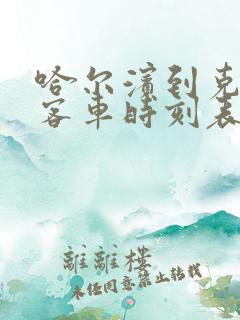 哈尔滨到克
客车时刻表
離離樓
未经同意禁止转载